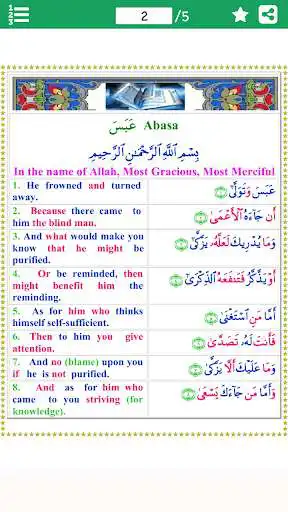 2 /5
عَبَسَ Abasa
بِسْمِ ٱللَّهِ ٱلرَّحْمَـٰنِ ٱلرَّحِيمِ
In the name of Allah, Most Gracious, Most Merciful
1. He frowned and turned
away.
عَبَسَ وَتَوَلَّىٰٓ
2. Because there came to
him the blind man.
أَن جَآءَهُ ٱلْأَعْمَىٰ
3. And what would make you
know that he might be
purified.
وَمَا يُدْرِيكَ لَعَلَّهُۥ يَزَّكَّىٰٓ
4. Or be reminded, then
might benefit him the
reminding.
أَوْ يَذَّكَّرُ فَتَنفَعَهُ ٱلذِّكْرَىٰٓ
5. As for him who thinks
himself self-sufficient.
أَمَّا مَنِ ٱسْتَغْنَىٰ
6. Then to him you give
attention.
فَأَنتَ لَهُۥ تَصَدَّىٰ
7. And no (blame) upon you
if he is not purified.
وَمَا عَلَيْكَ أَلَّا يَزَّكَّىٰ
8. And as for him who
came to you striving (for
knowledge).
وَأَمَّا مَن جَآءَكَ يَسْعَىٰ